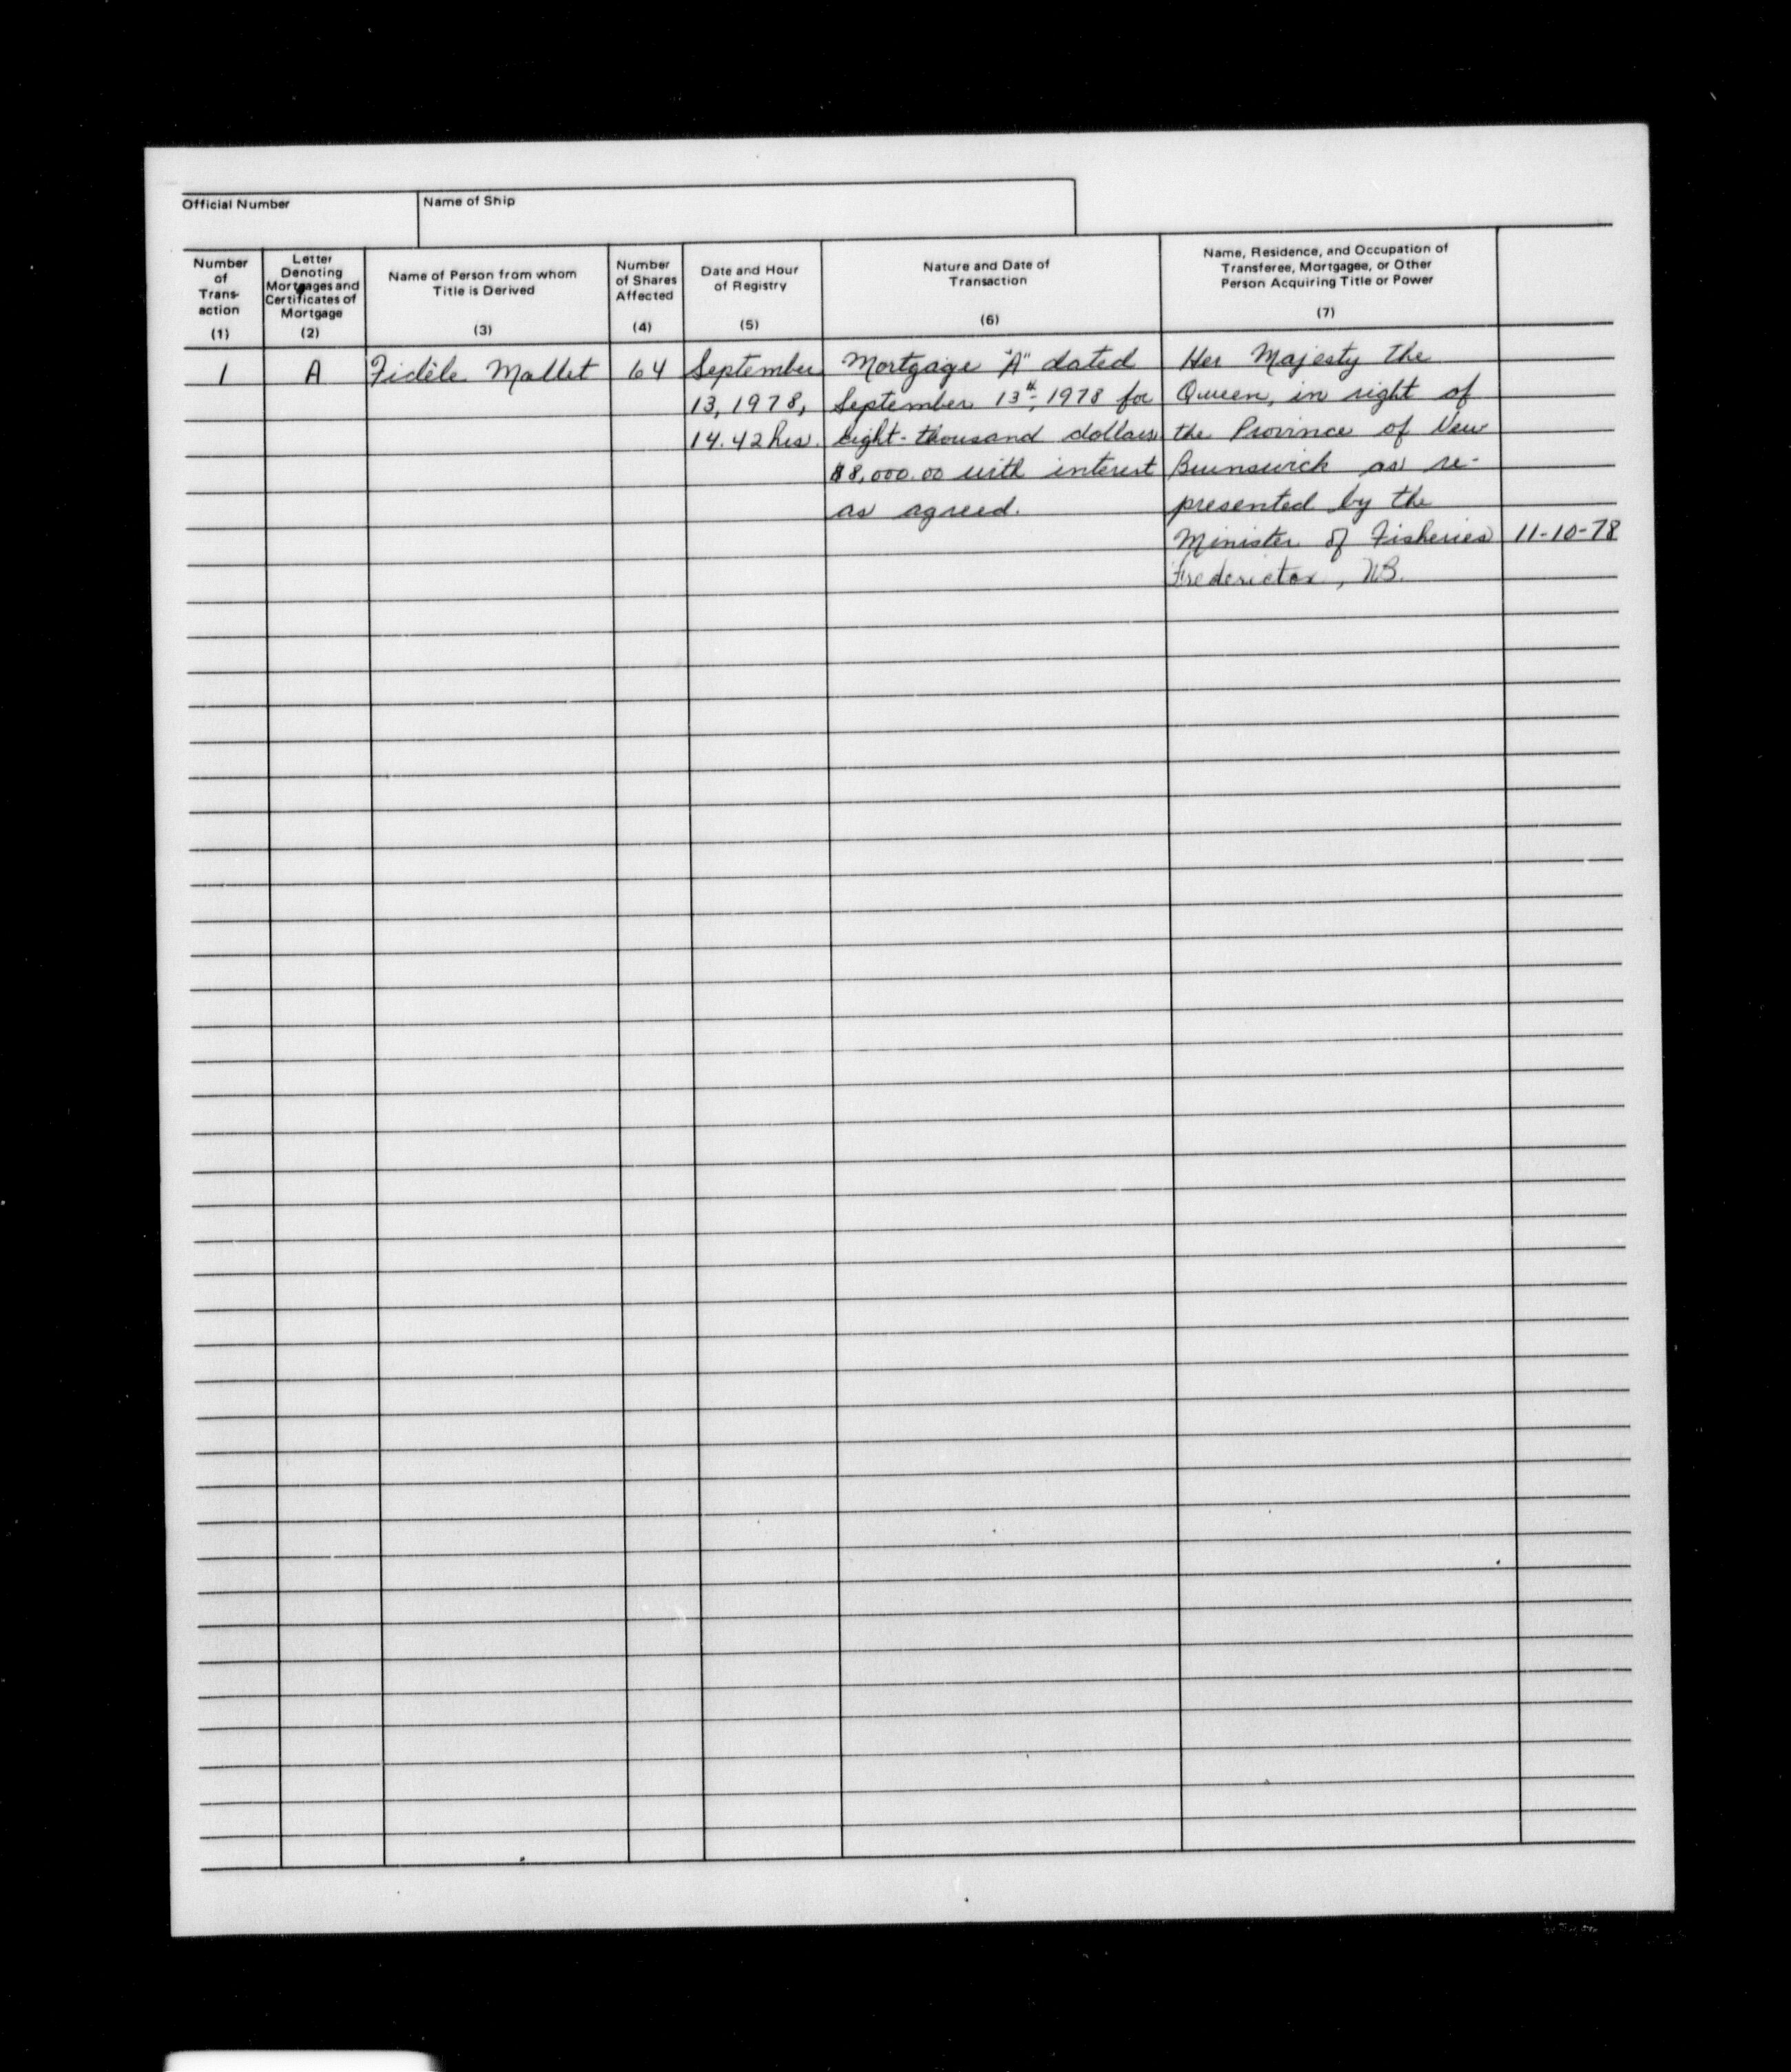 Official Number
Name of Ship
Number
of
Trans-
action
(1)
Letter
Denoting
Mortgages and
Certificates of
Mortgage
(2)
Name of Person from whom
Title is Derived
(3)
Number
of Shares
Affected
(4)
Date and Hour
of Registry
(5)
Nature and Date of
Transaction
(6)
Name, Residence, and Occupation of
Transferee, Mortgagee, or Other
Person Acquiring Title or Power
(7)
1
A
Fidèle Mallet
64
September
13, 1978,
14.42 hrs.
Mortgage "A" dated
September 13th, 1978 for
eight-thousand dollars
$8,000.00 with interest
as agreed.
Her Majesty the
Queen, in right of
the Province of New
Brunswick as re-
presented by the
Minister of Fisheries
Fredericton, NB.
11-10-78